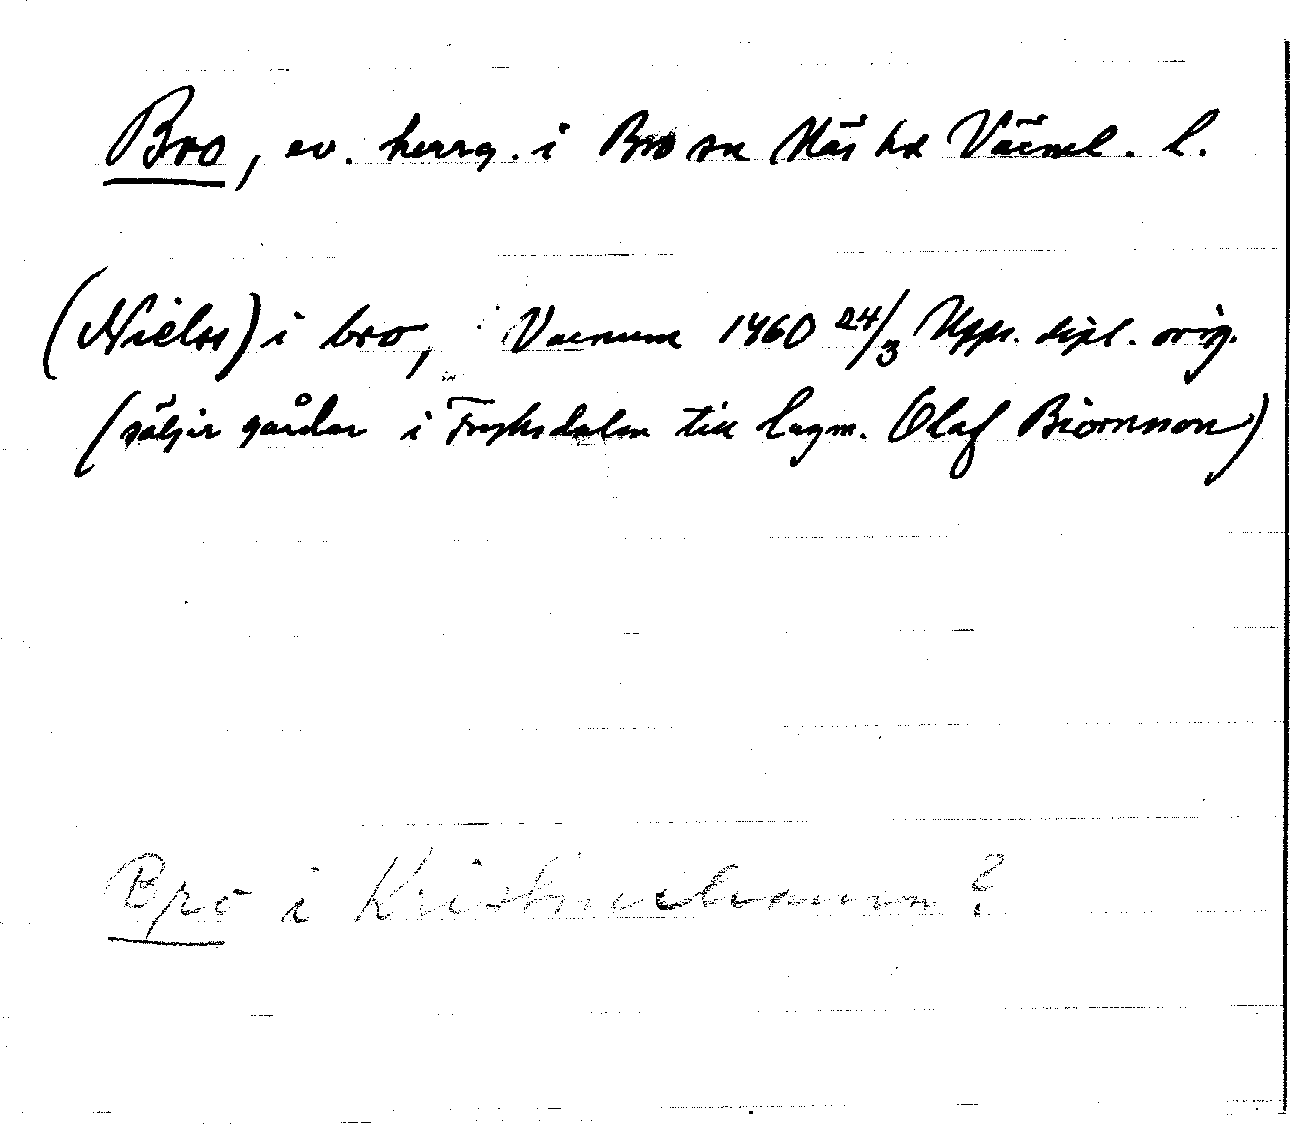 Bro, ev. herrg. i Bro sn Näs hd Värml. l.
(Nielss) i bro, Varnum 1460 24/3 Upps. dipl. orig.
(säljer gårdar i Fryksdalen till lagm. Olaf Biornsson)
Bro i Kristinehamn?